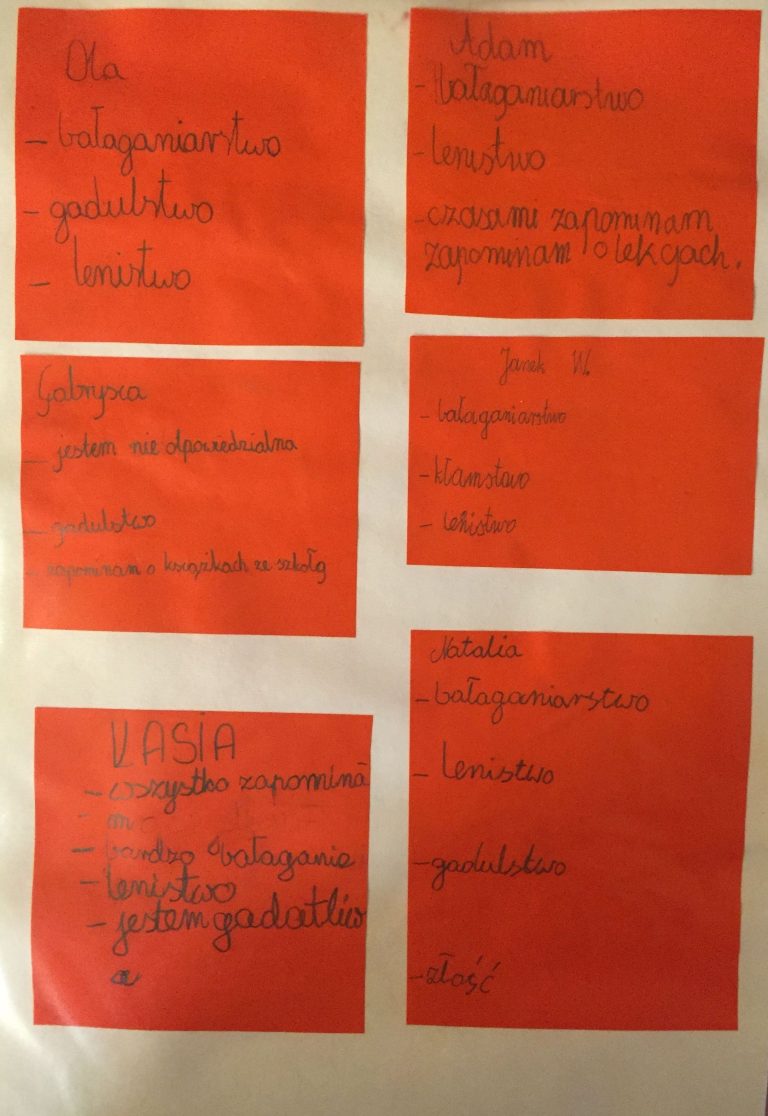 Ola
- bałaganiarstwo
- gadulstwo
- lenistwo
Adam
- bałaganiarstwo
- lenistwo
- czasami zapominam
zapominam o lekcjach.
Gabrysia
- jestem nie dpowiedzialna
- gadulstwo
- zapominam o książkach ze szkołą
Janek W.
- bałaganiarstwo
- kłamstwo
- leństwo
KASIA
- wszystko zapomina
- m
- bardzo bałaganie
- lenistwo
- jestem gadatliw
a
Natalia
- bałaganiarstwo
- lenistwo
- gadulstwo
- złość